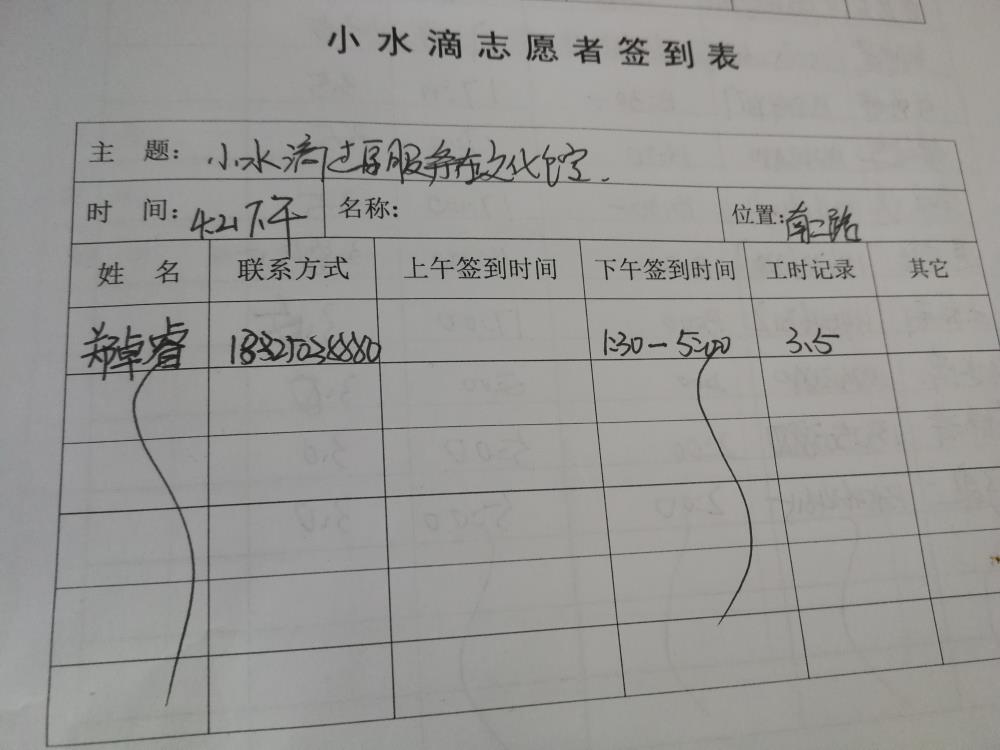 小水滴志愿者签到表
主 题: 小水滴志愿服务在文化宫.
时 间: 4.21下午 名称: 位置: 南二路
姓 名 联系方式 上午签到时间 下午签到时间 工时记录 其它
郑卓睿 1:30－5:00 3.5